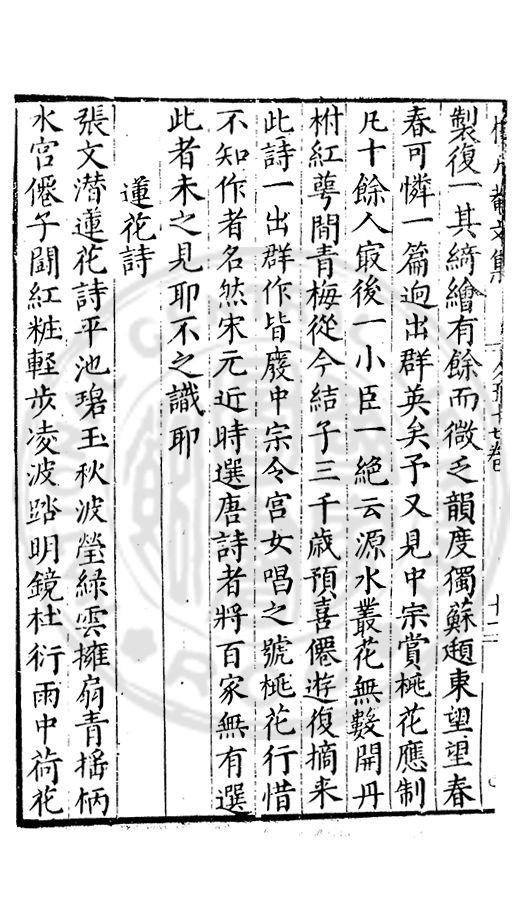 製復一其綺繪有餘而微乏韻度獨蘇頲東望望春
春可憐一篇迥出群英矣予又見中宗賞桃花應制
凡十餘人㝡後一小臣一絕云源水叢花無數開丹
柎紅萼間青梅從今結子三千歳預喜僊遊復摘来
此詩一出群作皆廢中宗令宫女唱之號桃花行惜
不知作者名然宋元近時選唐詩者將百家無有選
此者未之見耶不之識耶
蓮花詩
張文潜蓮花詩平池碧玉秋波瑩綠雲擁扇青揺柄
水宫僊子闘紅粧軽步凌波踏明鏡杜衍雨中荷花